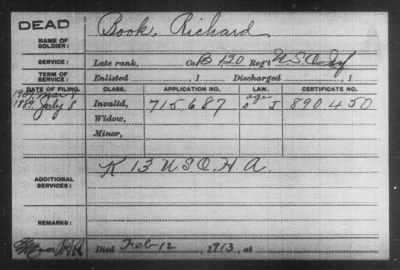 DEAD
NAME OF SOLDIER:
Book, Richard
SERVICE:
Late rank, Co. B 120 Reg't U.S.C. Inf
TERM OF SERVICE:
Enlisted , 1 Discharged , 1
DATE OF FILING. CLASS. APPLICATION NO. LAW. CERTIFICATE NO.
1907, Mar
age
July 8 Invalid, 715687 J 890450
Widow,
Minor,
ADDITIONAL SERVICES:
K 13 U.S.C.H.A.
REMARKS:
Died Feb-12 , 1913, at